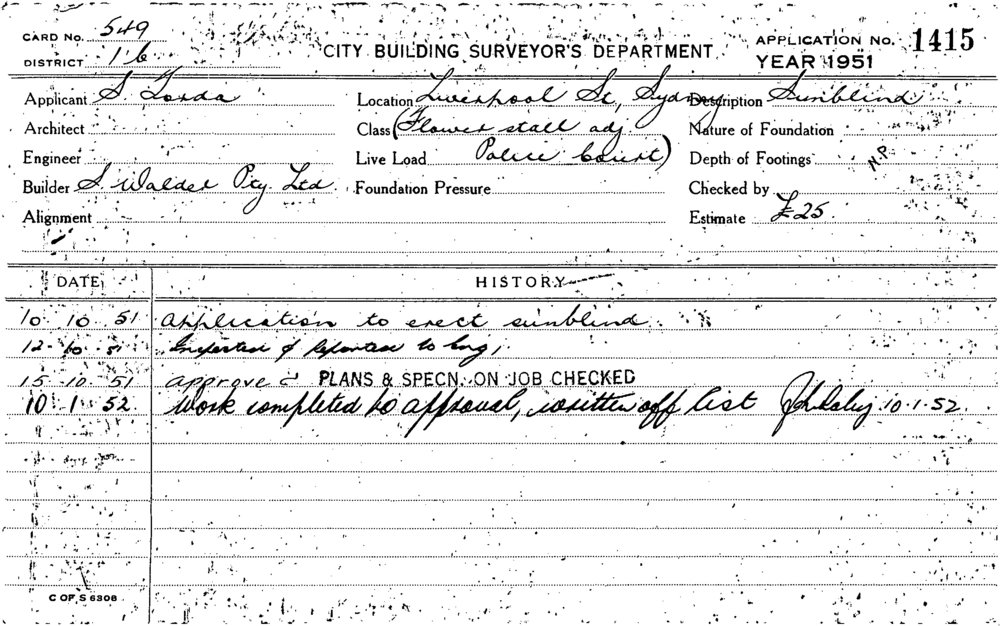 CARD No. 549
DISTRICT 16
CITY BUILDING SURVEYOR'S DEPARTMENT
APPLICATION No. 1415
YEAR 1951
Applicant S. Torda Location Liverpool St, Sydney Description Sunblind
Architect Class (Flower stall adj. Nature of Foundation
Engineer Live Load Police Court) Depth of Footings N.P.
Builder S Walder Pty Ltd Foundation Pressure Checked by
Alignment Estimate £25
DATE HISTORY
10 10 51 application to erect sunblind.
12 10 51 Inspected & reported to Eng,
15 10 51 approved PLANS & SPECN. ON JOB CHECKED
10 1 52 Work completed to approval, written off list 10.1.52.
C OF S 6308